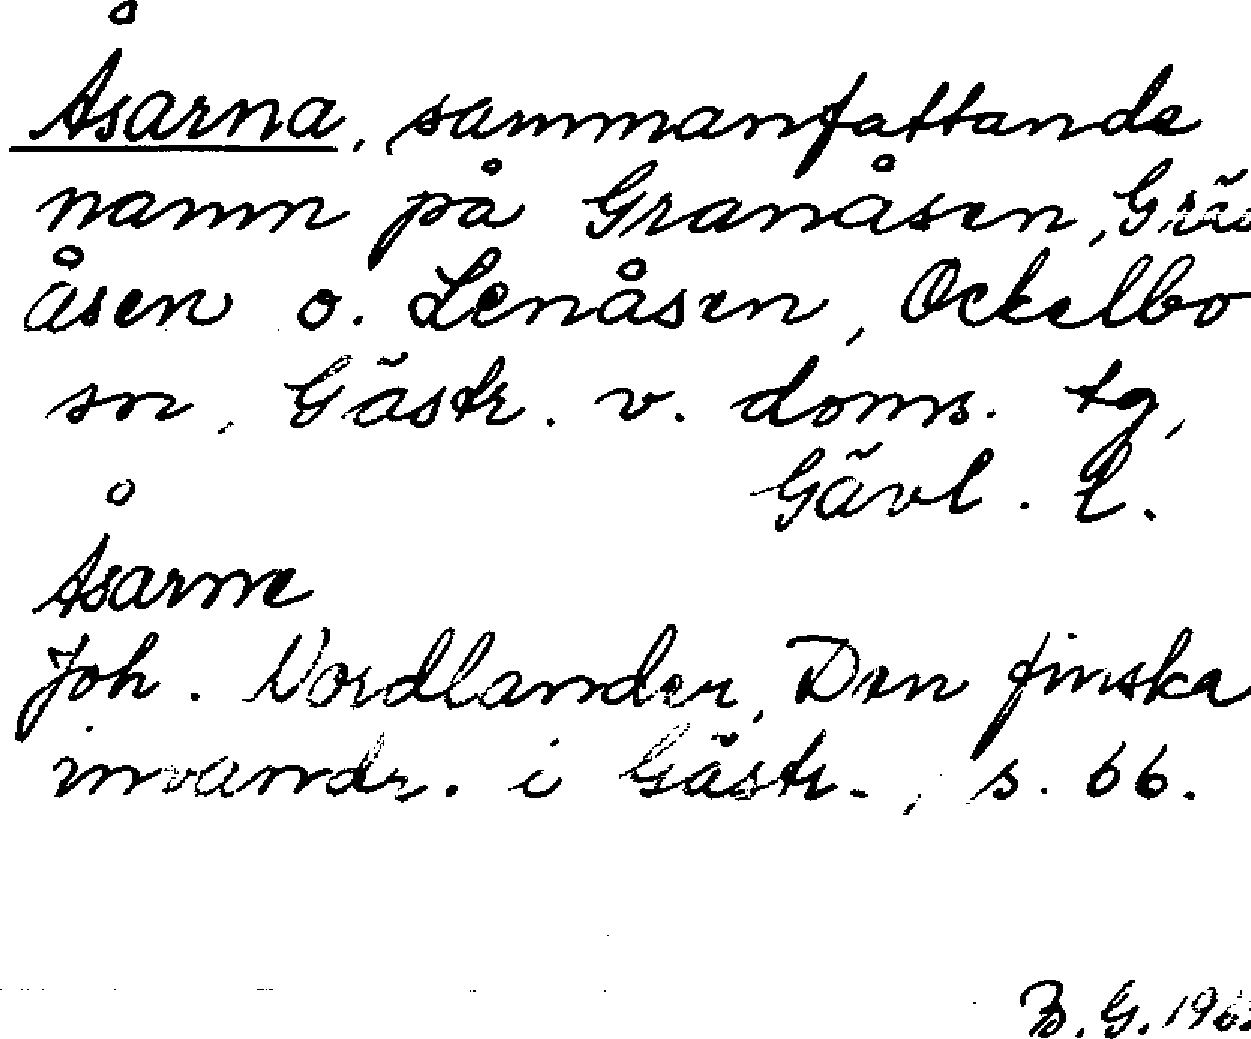 Åsarna, sammanfattande
namn på Granåsen, Gräs
åsen o. Lenåsen, Ockelbo
sn, Gästr. v. doms. tg,
Gävl. l.
Åsarne
Joh. Nordlander, Den finska
invandr. i Gästr., s. 66.
B. G.